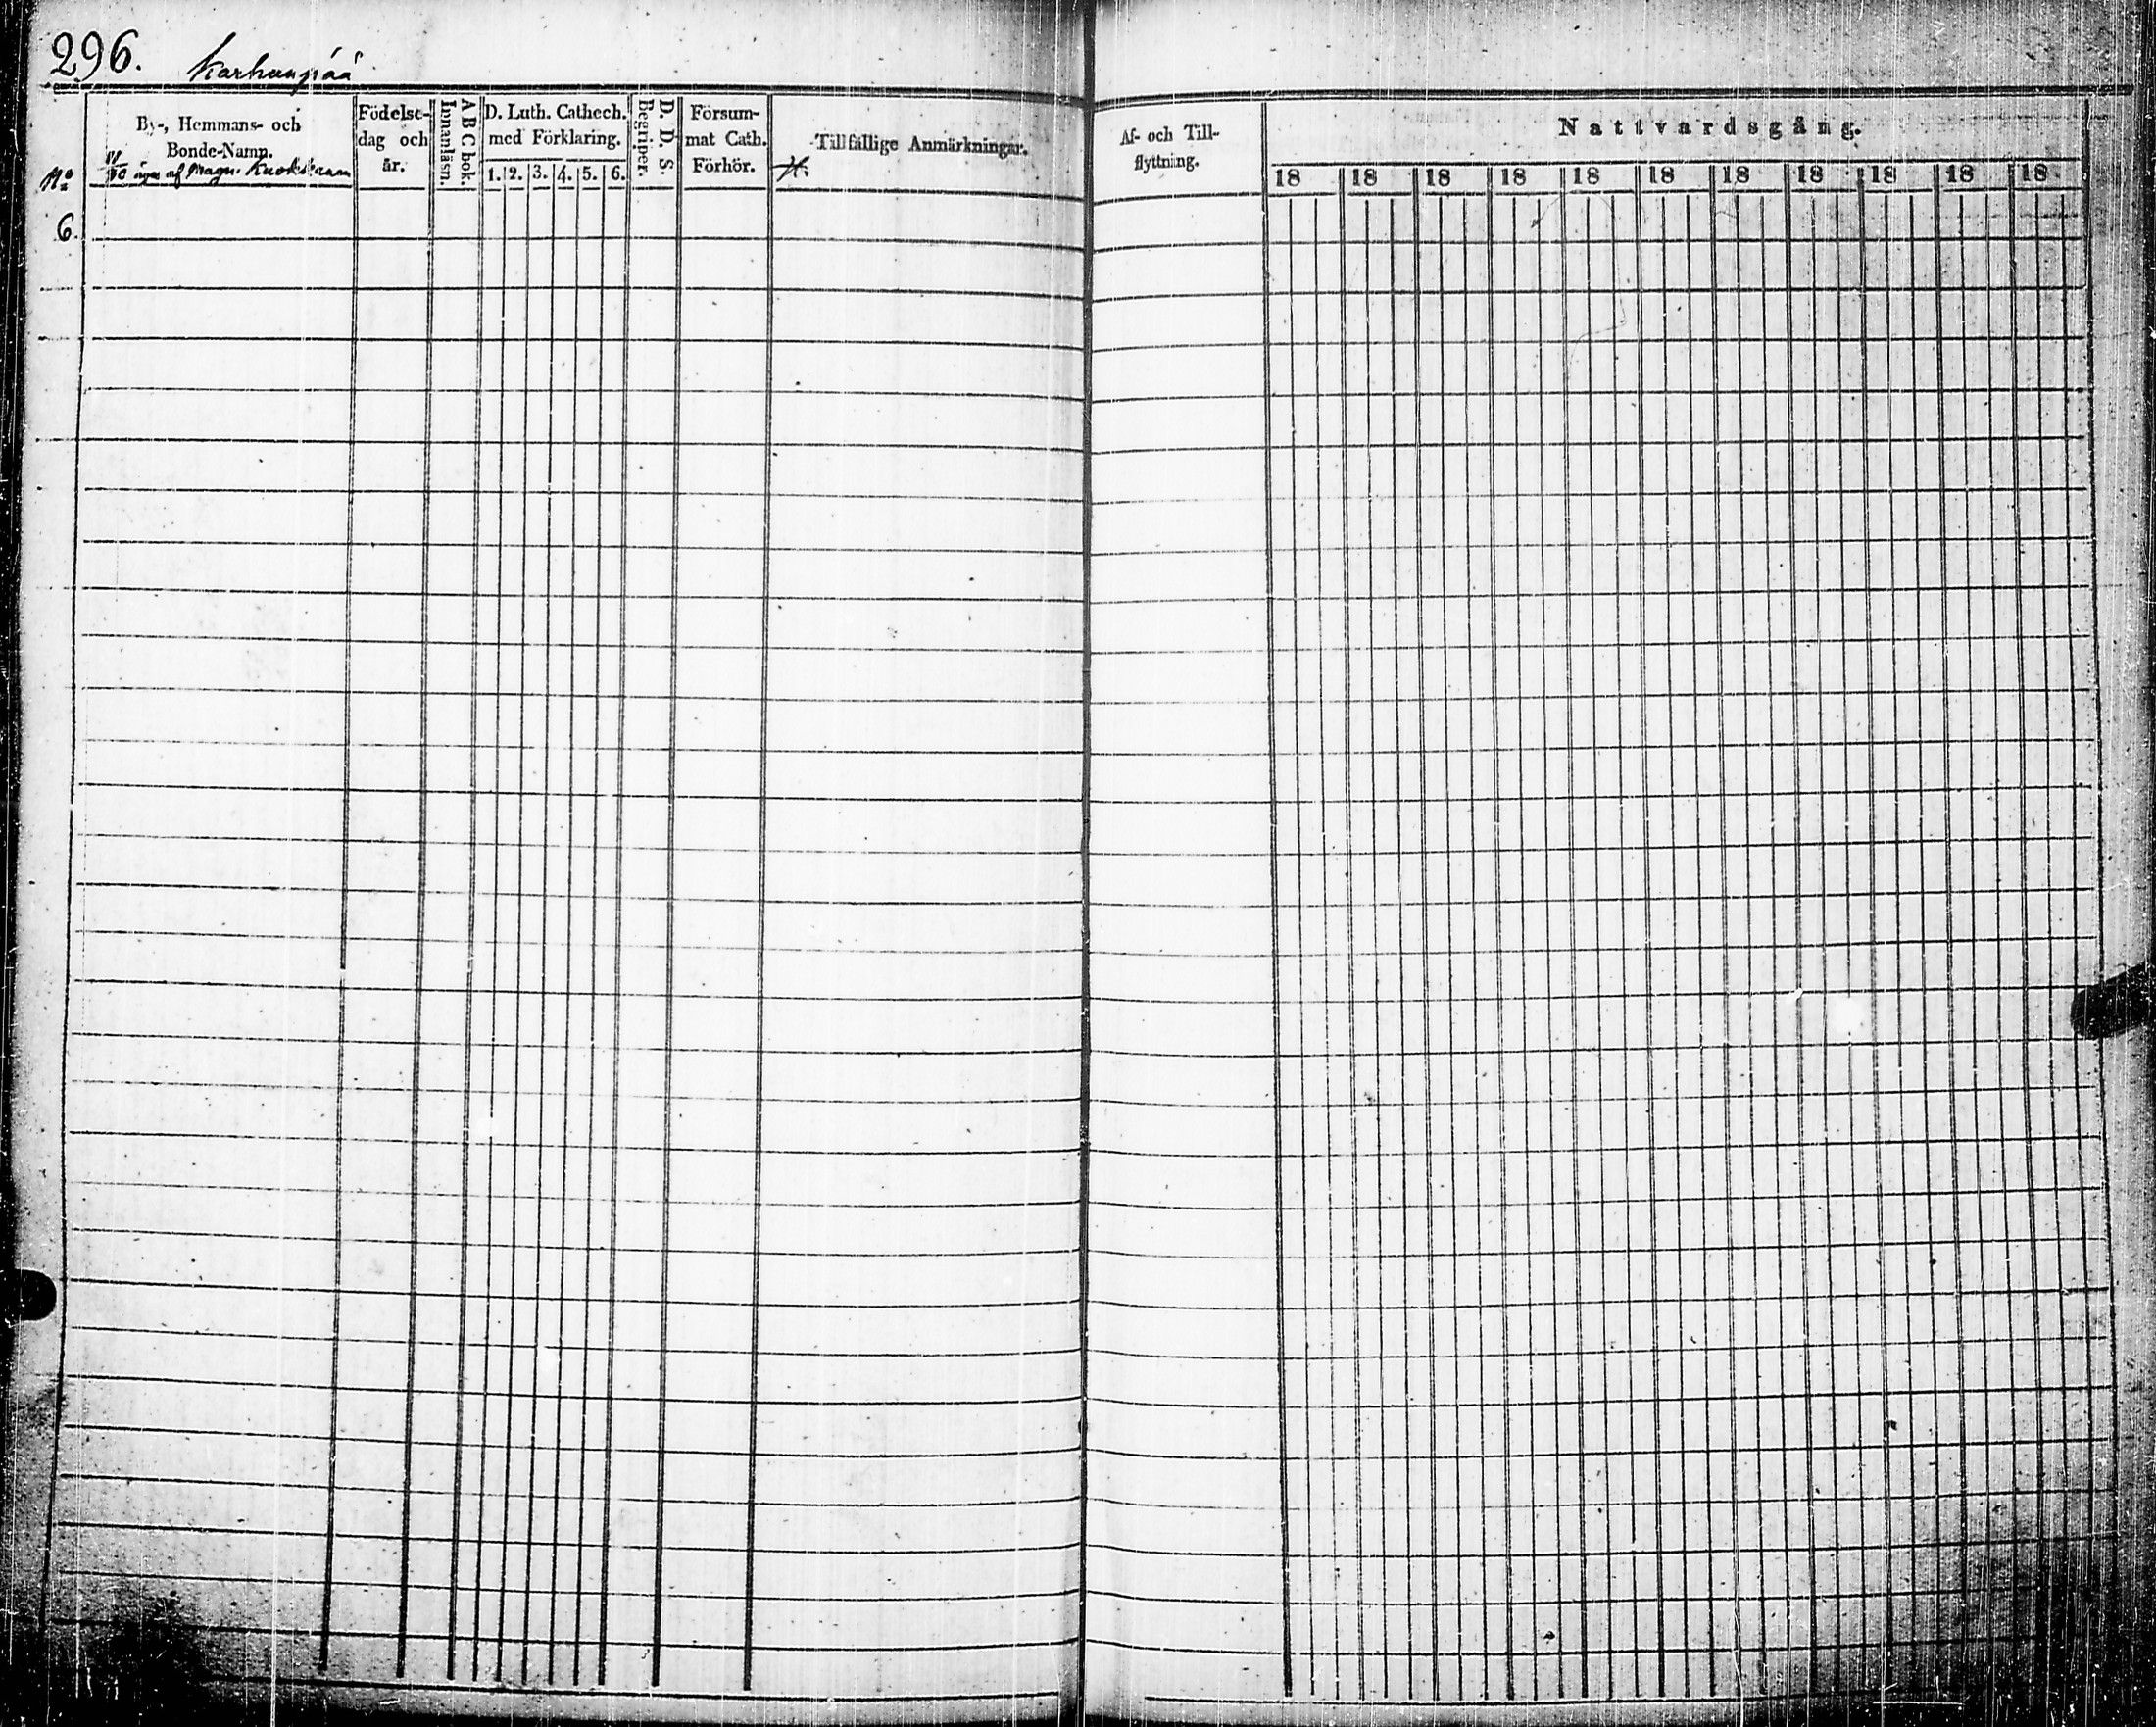 296. Karhunpää
By-, Hemmans- och
Bonde-Namn.
Födelse-
dag och
år.
A B C bok.
Innanläsn.
D. Luth. Cathech.
med Förklaring.
1. 2. 3. 4. 5. 6.
D. D. S.
Begriper.
Försum-
mat Cath.
Förhör.
Tillfällige Anmärkningar.
Af- och Till-
flyttning.
Nattvardsgång.
18 18 18 18 18 18 18 18 18 18 18
No
af Magn.
H.
6.